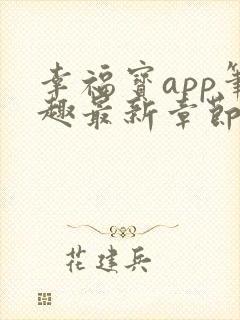 幸福宝app笔
趣最新章节
花建兵